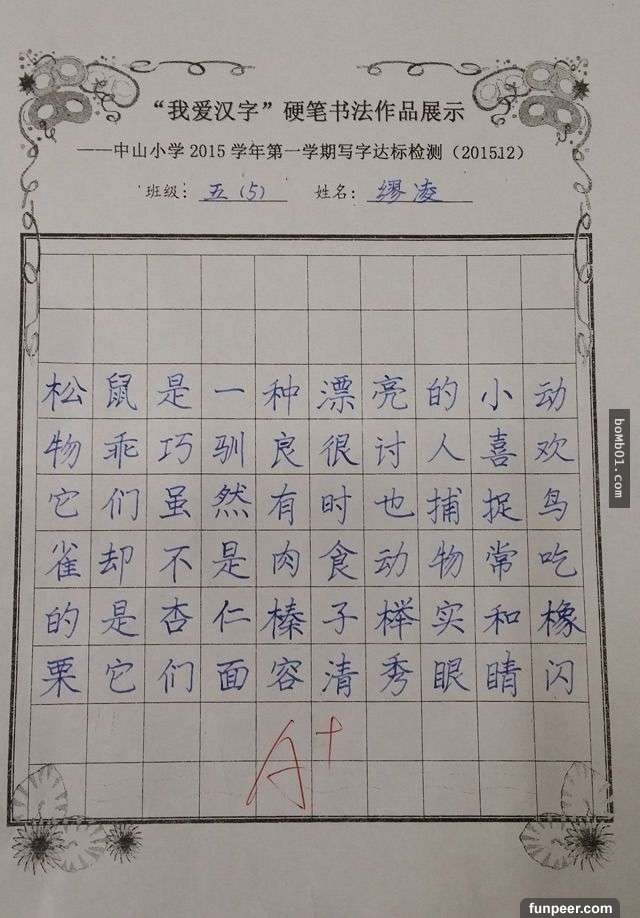 “我爱汉字”硬笔书法作品展示
——中山小学2015学年第一学期写字达标检测（2015.12）
班级：五（5） 姓名：缪凌
松鼠是一种漂亮的小动
物乖巧驯良很讨人喜欢
它们虽然有时也捕捉鸟
雀却不是肉食动物常吃
的是杏仁榛子榉实和橡
栗它们面容清秀眼睛闪
A+
bomb01.com
funpeer.com